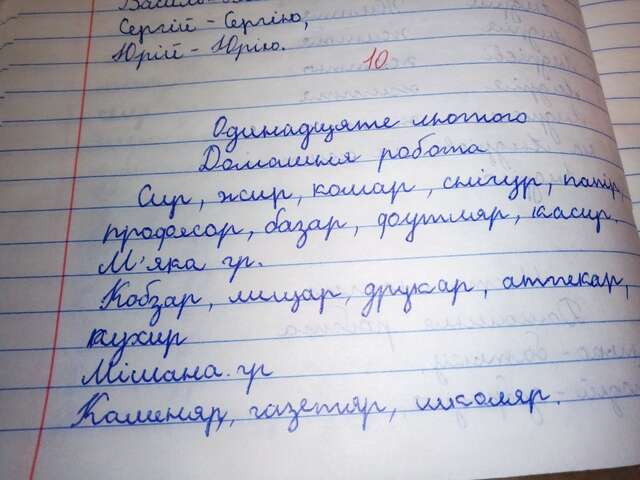 Сергій - Сергію,
Юрій - Юрію.
10
Одинадцяте лютого
Домашня робота
Сир, жир, комар, снігур, папір,
професор, базар, футляр, касир.
М'яка гр.
Кобзар, лицар, друкар, аптекар,
кухар
Мішана. гр
Каменяр, газетяр, школяр.